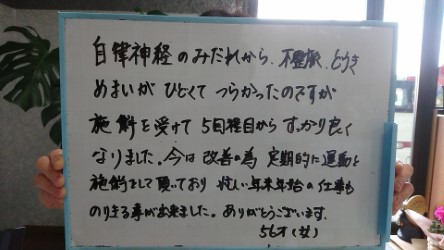 自律神経のみだれから、不整脈、どうき
めまいがひどくてつらかったのですが
施術を受けて5回程目からすっかり良く
なりました。今は改善の為定期的に運動と
施術をして頂いており忙しい年末年始の仕事も
のりきる事が出来ました。ありがとうございます。
56才(女)